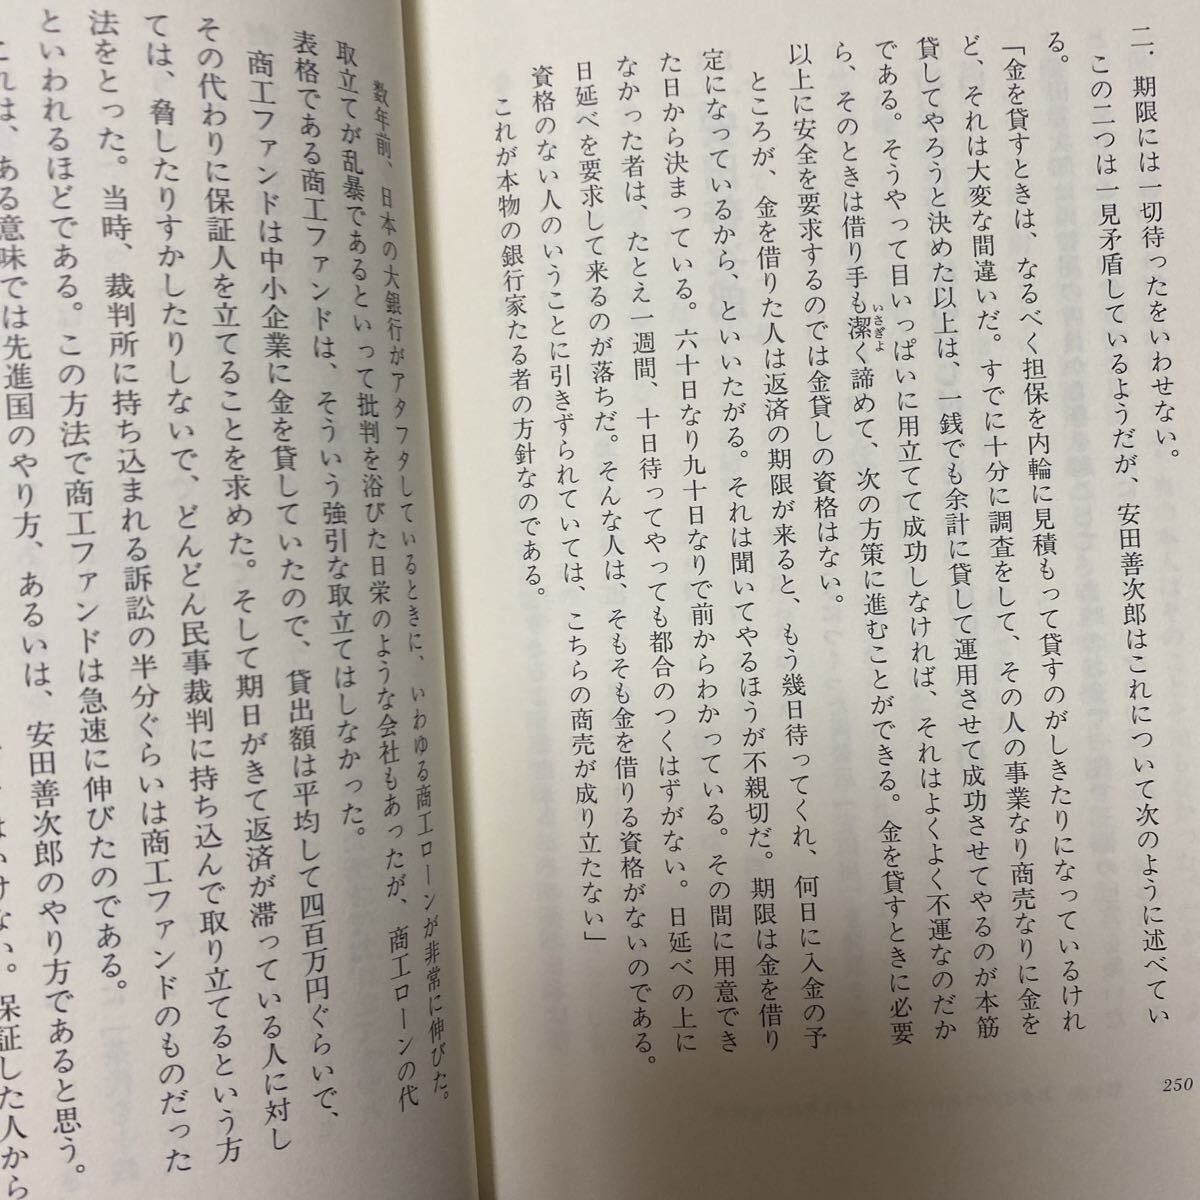 二．期限には一切待ったをいわせない。
この二つは一見矛盾しているようだが、安田善次郎はこれについて次のように述べてい
る。
「金を貸すときは、なるべく担保を内輪に見積もって貸すのがしきたりになっているけれ
ど、それは大変な間違いだ。すでに十分に調査をして、その人の事業なり商売なりに金を
貸してやろうと決めた以上は、一銭でも余計に貸して運用させて成功させてやるのが本筋
である。そうやって目いっぱいに用立てて成功しなければ、それはよくよく不運なのだか
ら、そのときは借り手も潔く諦めて、次の方策に進むことができる。金を貸すときに必要
いさぎよ
以上に安全を要求するのでは金貸しの資格はない。
ところが、金を借りた人は返済の期限が来ると、もう幾日待ってくれ、何日に入金の予
定になっているから、といいたがる。それは聞いてやるほうが不親切だ。期限は金を借り
た日から決まっている。六十日なり九十日なりで前からわかっている。その間に用意でき
なかった者は、たとえ一週間、十日待ってやっても都合のつくはずがない。日延べの上に
日延べを要求して来るのが落ちだ。そんな人は、そもそも金を借りる資格がないのである。
資格のない人のいうことに引きずられていては、こちらの商売が成り立たない」
これが本物の銀行家たる者の方針なのである。
250
数年前、日本の大銀行がアタフタしているときに、いわゆる商工ローンが非常に伸びた。
取立てが乱暴であるといって批判を浴びた日栄のような会社もあったが、商工ローンの代
表格である商工ファンドは、そういう強引な取立てはしなかった。
商工ファンドは中小企業に金を貸していたので、貸出額は平均して四百万円ぐらいで、
その代わりに保証人を立てることを求めた。そして期日がきて返済が滞っている人に対し
ては、脅したりすかしたりしないで、どんどん民事裁判に持ち込んで取り立てるという方
法をとった。当時、裁判所に持ち込まれる訴訟の半分ぐらいは商工ファンドのものだった
といわれるほどである。この方法で商工ファンドは急速に伸びたのである。
これは、ある意味では先進国のやり方、あるいは、安田善次郎のやり方であると思う。
はいけない。保証した人から